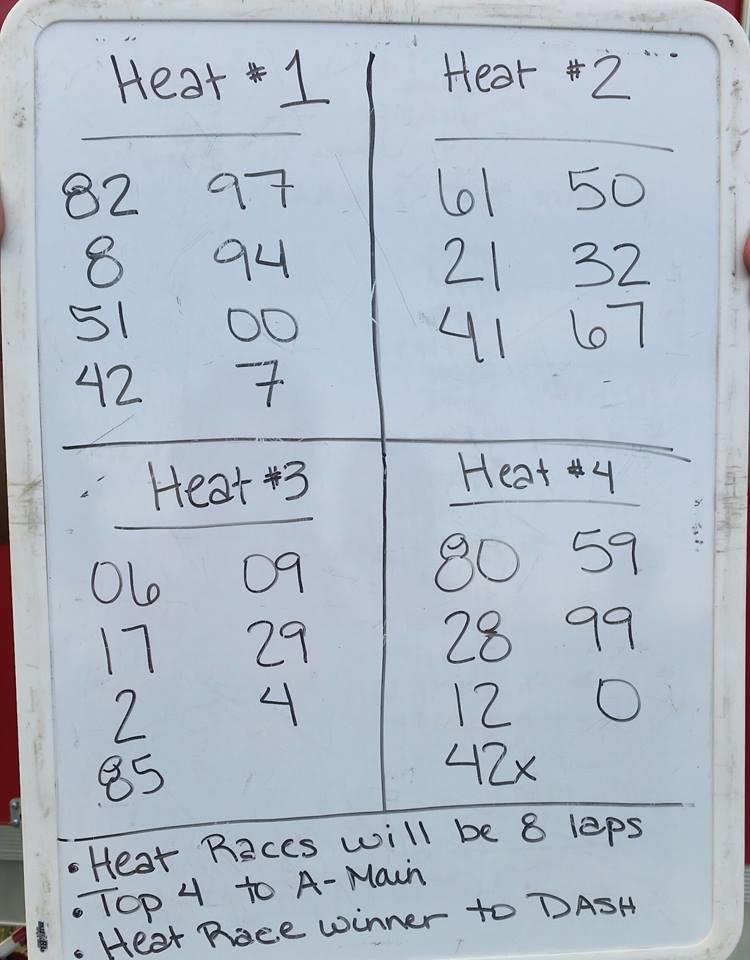 Heat #1
82 97
8 94
51 00
42 7
Heat #2
61 50
21 32
41 67
Heat #3
06 09
17 29
2 4
85
Heat #4
80 59
28 99
12 0
42x
• Heat Races will be 8 laps
• Top 4 to A-Main
• Heat Race winner to DASH